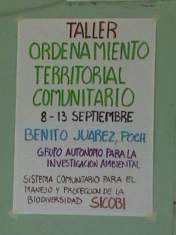 TALLER
ORDENAMIENTO
TERRITORIAL
COMUNITARIO
8-13 SEPTIEMBRE
BENITO JUAREZ, POCH.
GRUPO AUTONOMO PARA LA
INVESTIGACION AMBIENTAL
SISTEMA COMUNITARIO PARA EL
MANEJO Y PROTECCION DE LA
BIODIVERSIDAD SICOBI